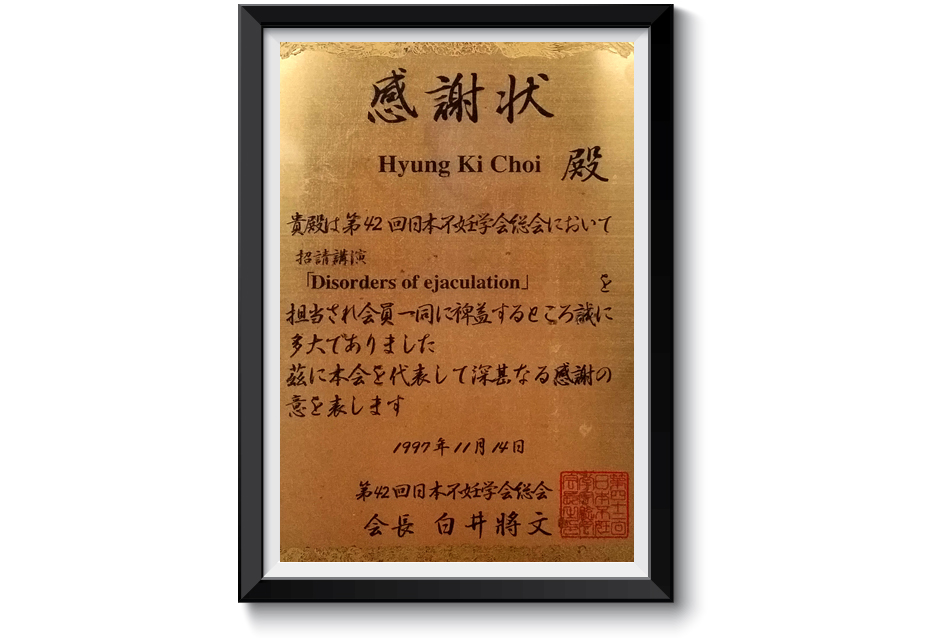 感謝状
Hyung Ki Choi 殿
貴殿は第42回日本不妊学会総会において
招請講演
「Disorders of ejaculation」 を
担当され会員一同に裨益するところ誠に
多大でありました
茲に本会を代表して深甚なる感謝の
意を表します
1997年11月14日
第42回日本不妊学会総会
会長 白井將文